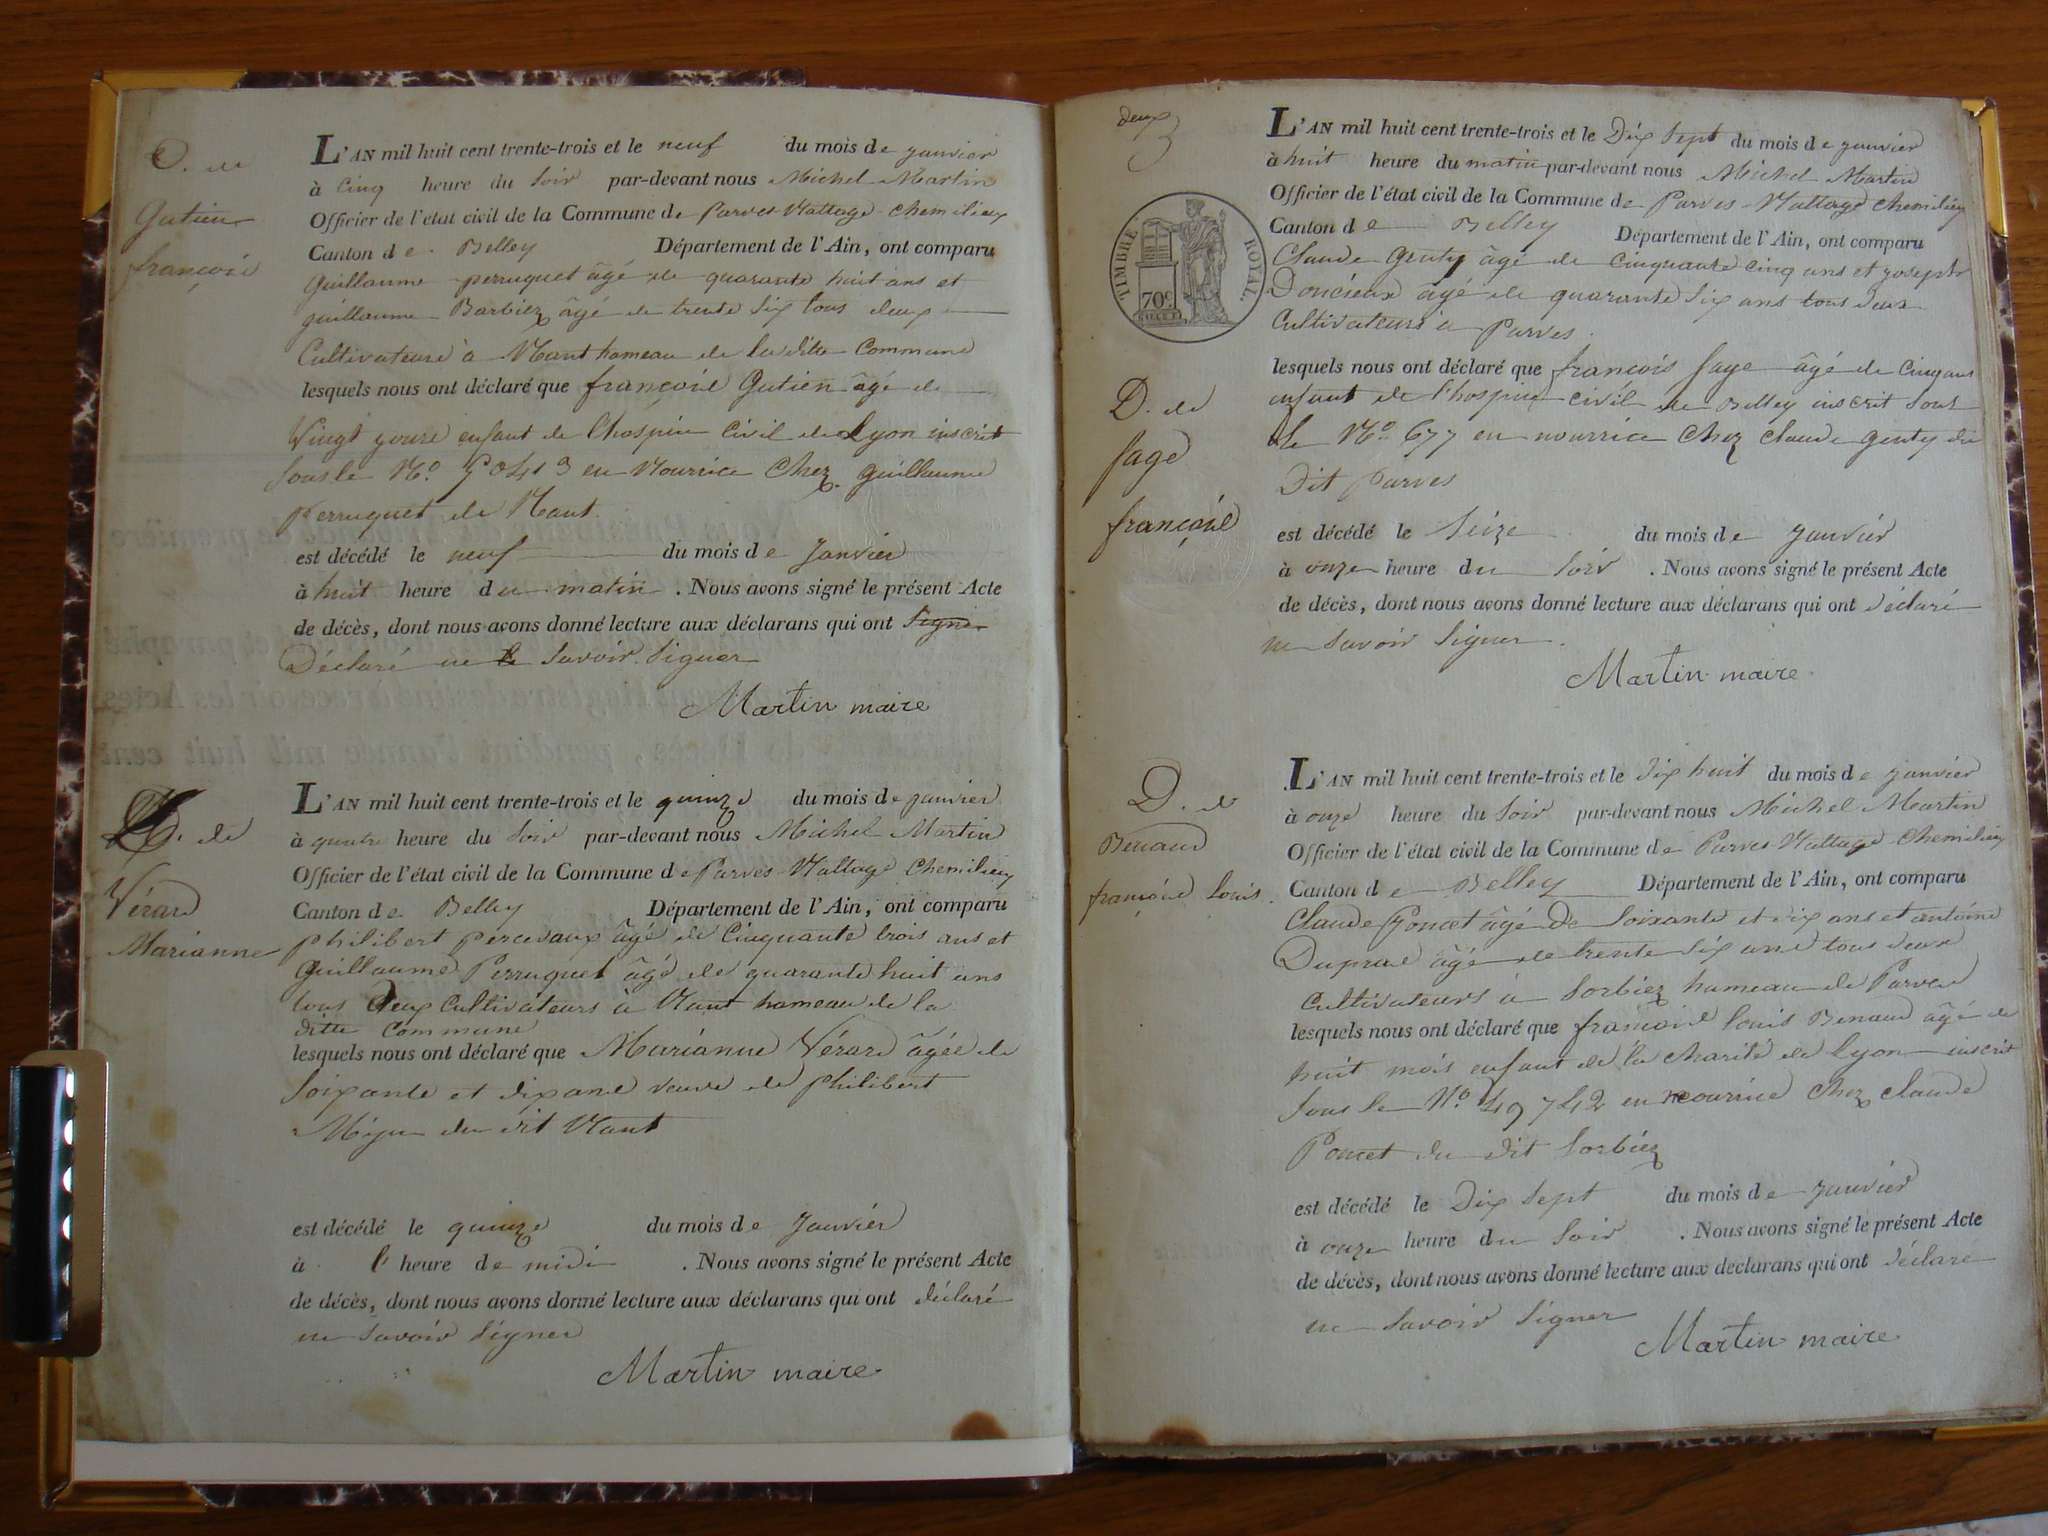 D. de
Gatien
françoise
L'AN mil huit cent trente-trois et le neuf du mois de janvier
à cinq heure du soir par-devant nous Michel Martin
Officier de l'état civil de la Commune de Parves-Nattage-Chemilieu
Canton de Belley Département de l'Ain, ont comparu
guillaume perruquet âgé de quarante huit ans et
guillaume Barbiez âgé de trente six tous deux
Cultivateurs à Nant hameau de la ditte Commune
lesquels nous ont déclaré que françoise Gatien âgé de
Vingt jours enfant de l'hospice Civil de Lyon inscrit
sous le N.o 5043 en Nourrice Chez guillaume
Perruquet de Nant.
est décédé le neuf du mois de Janvier
à huit heure du matin. Nous avons signé le présent Acte
de décès, dont nous avons donné lecture aux déclarans qui ont signé
Déclaré ne savoir signer
Martin maire
D. de
Vérard
Marianne
L'AN mil huit cent trente-trois et le quinze du mois de janvier
à quatre heure du soir par-devant nous Michel Martin
Officier de l'état civil de la Commune de Parves-Nattage Chemilieu
Canton de Belley Département de l'Ain, ont comparu
philibert percevaux âgé de Cinquante trois ans et
guillaume Perruquet âgé de quarante huit ans
tous deux Cultivateurs à Nant hameau de la
ditte Commune
lesquels nous ont déclaré que Marianne Vérard âgée de
soixante et dix ans veuve de philibert
du dit Nant
est décédé le quinze du mois de Janvier
à l'heure de midi. Nous avons signé le présent Acte
de décès, dont nous avons donné lecture aux déclarans qui ont déclaré
ne savoir signer
Martin maire
deux
TIMBRE ROYAL
70c
D. de
fage
françois
L'AN mil huit cent trente-trois et le Dix sept du mois de janvier
à huit heure du matin par-devant nous Michel Martin
Officier de l'état civil de la Commune de Parves-Nattage Chemilieu
Canton de Belley Département de l'Ain, ont comparu
Claude genty âgé de cinquante cinq ans et joseph
Doucieux âgé de quarante six ans tous deux
Cultivateurs à Parves.
lesquels nous ont déclaré que françois fage âgé de cinq ans
enfant de l'hospice civil de Belley inscrit sous
le N.o 677 en nourrice chez claude genty du
Dit Parves
est décédé le seize du mois de janvier
à onze heure du soir. Nous avons signé le présent Acte
de décès, dont nous avons donné lecture aux déclarans qui ont déclaré
ne savoir signer.
Martin maire
D. de
Benaud
françoise louis.
L'AN mil huit cent trente-trois et le dix huit du mois de janvier
à onze heure du soir par-devant nous Michel Martin
Officier de l'état civil de la Commune de Parves-Nattage-Chemilieu
Canton de Belley Département de l'Ain, ont comparu
Claude Poncet âgé De soixante et dix ans et antoine
Duprae âgé de trente six ans tous deux
cultivateurs à sorbiez hameau de Parves
lesquels nous ont déclaré que françoise louis Benaud âgé de
huit mois enfant de la charité de lyon inscrit
sous le N.o 49742 en nourrice chez claude
Poncet du dit sorbiez
est décédé le Dix sept du mois de janvier
à onze heure du soir. Nous avons signé le présent Acte
de décès, dont nous avons donné lecture aux déclarans qui ont déclaré
ne savoir signer
Martin maire